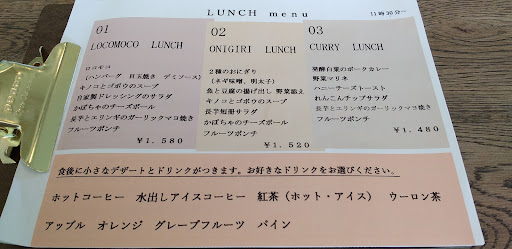 LUNCH menu
11時30分～
01
LOCOMOCO LUNCH
ロコモコ
(ハンバーグ 目玉焼き デミソース)
キノコとゴボウのスープ
自家製ドレッシングのサラダ
かぼちゃのチーズボール
長芋とエリンギのガーリックマヨ焼き
フルーツポンチ
¥1.580
02
ONIGIRI LUNCH
2種のおにぎり
(ネギ味噌、明太子)
魚と豆腐の揚げ出し 野菜添え
キノコとゴボウのスープ
長芋短冊サラダ
かぼちゃのチーズボール
フルーツポンチ
¥1.520
03
CURRY LUNCH
発酵白菜のポークカレー
野菜マリネ
ハニーチーズトースト
れんこんチップサラダ
長芋とエリンギのガーリックマヨ焼き
フルーツポンチ
¥1.480
食後に小さなデザートとドリンクがつきます。お好きなドリンクをお選びください。
ホットコーヒー 水出しアイスコーヒー 紅茶（ホット・アイス） ウーロン茶
アップル オレンジ グレープフルーツ パイン